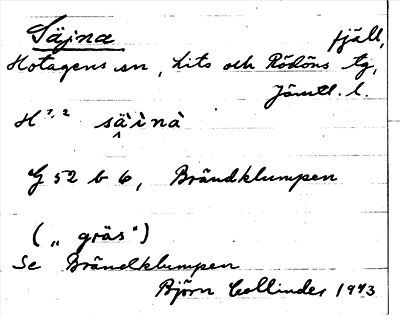 Säjna fjäll,
Hotagens sn, Lits och Rödöns tg,
Jämtl. l.
H 7,2 sä̀ìnà
G 52 b 6, Brändklumpen
(„ gräs")
Se Brändklumpen
Björn Collinder 1943